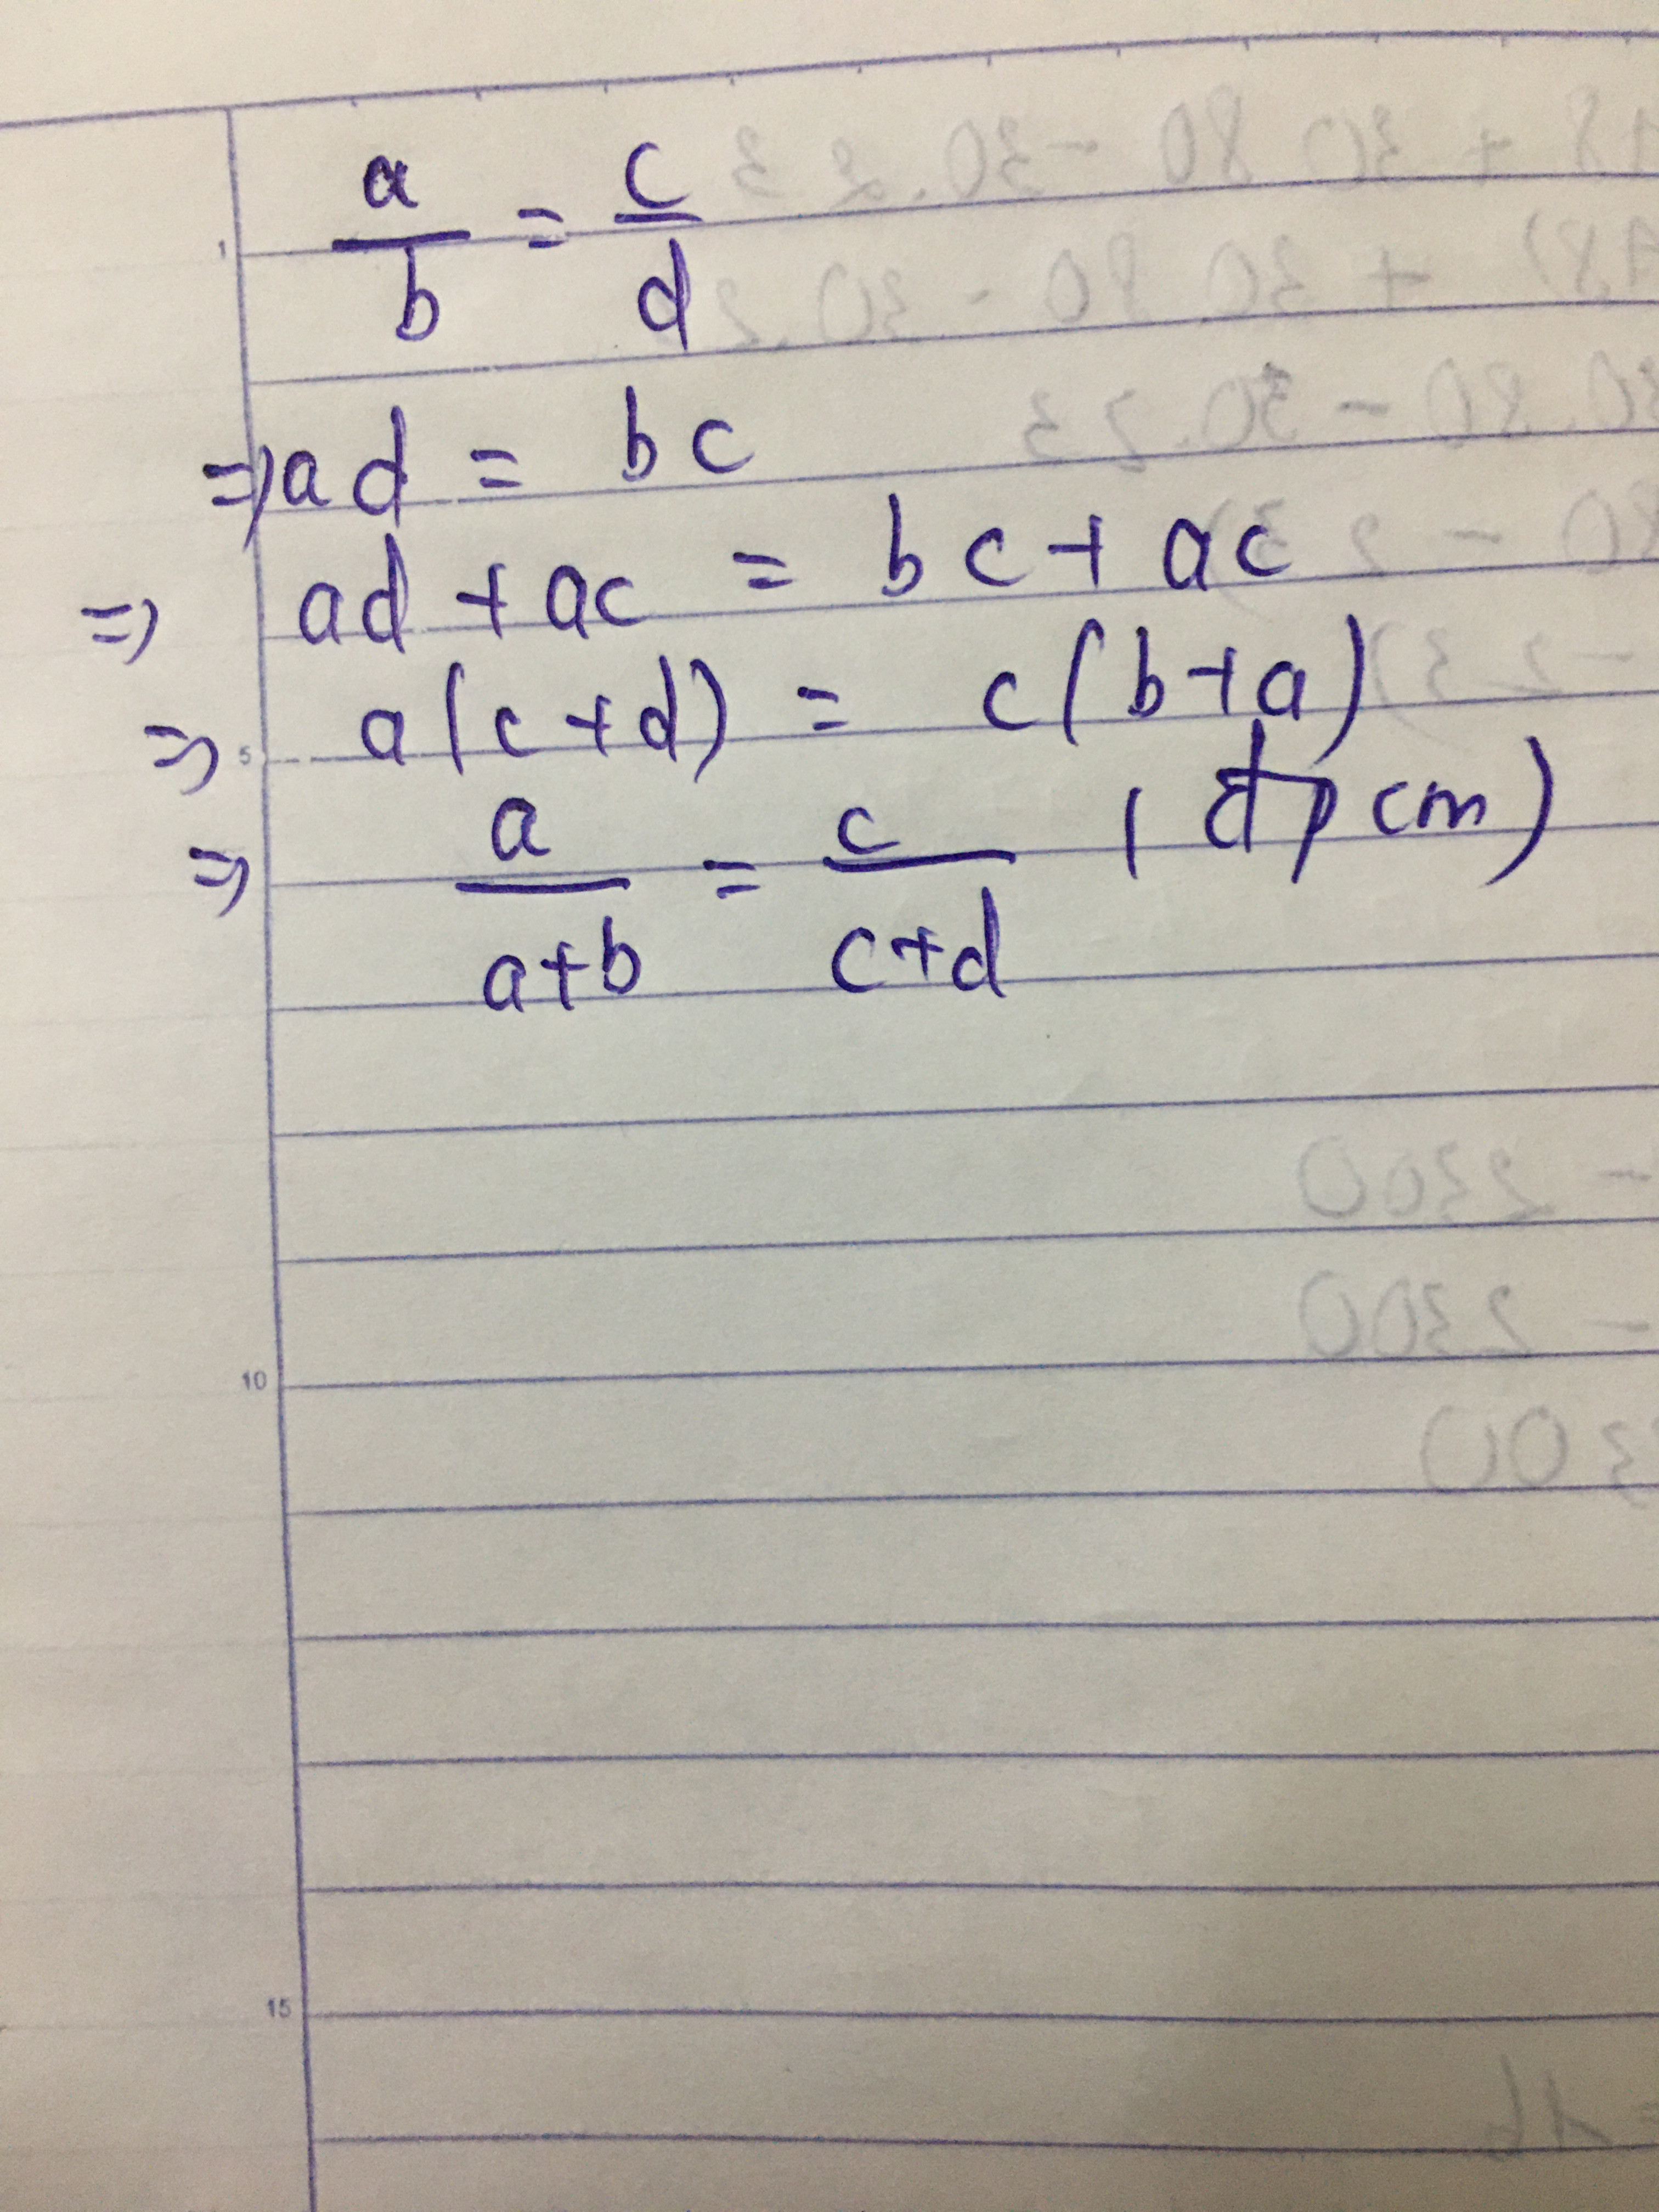 a/b = c/d
=> ad = bc
=> ad + ac = bc + ac
=> a(c+d) = c(b+a)
=> a/(a+b) = c/(c+d) (đpcm)
1
5
10
15